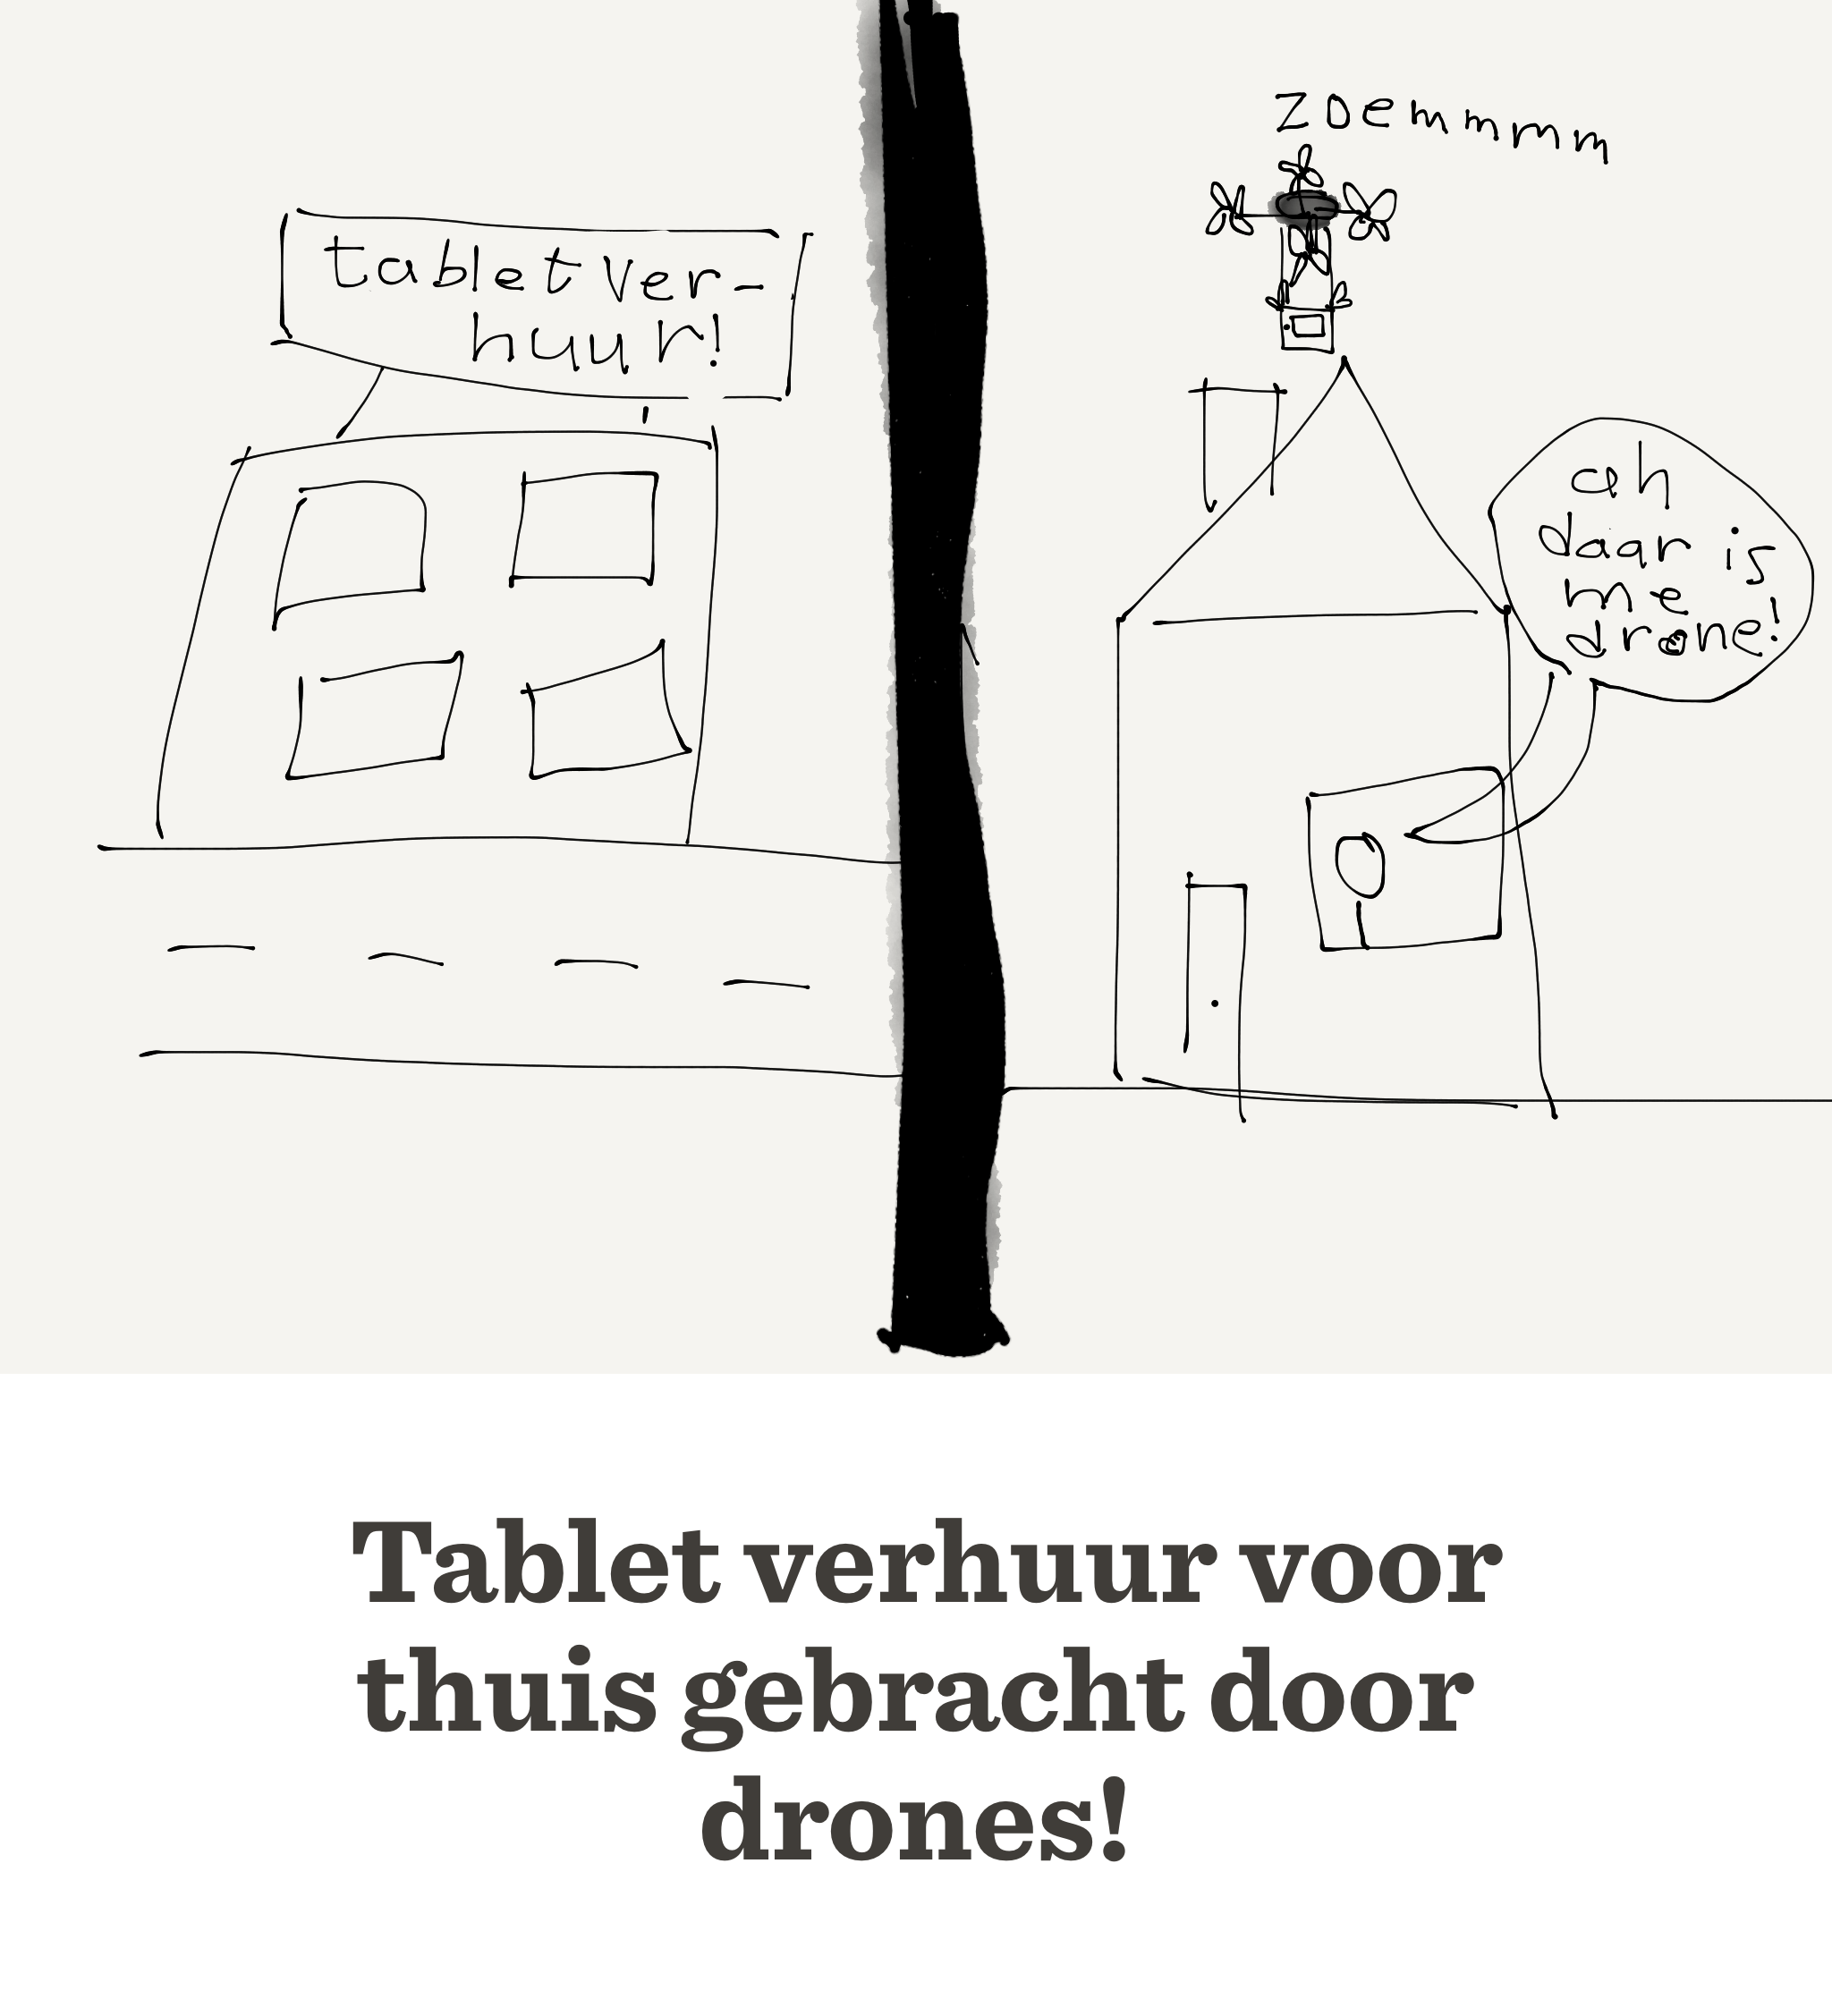 tablet ver-
huur!
zoemmmm
ah
daar is
me
drone!
Tablet verhuur voor
thuis gebracht door
drones!